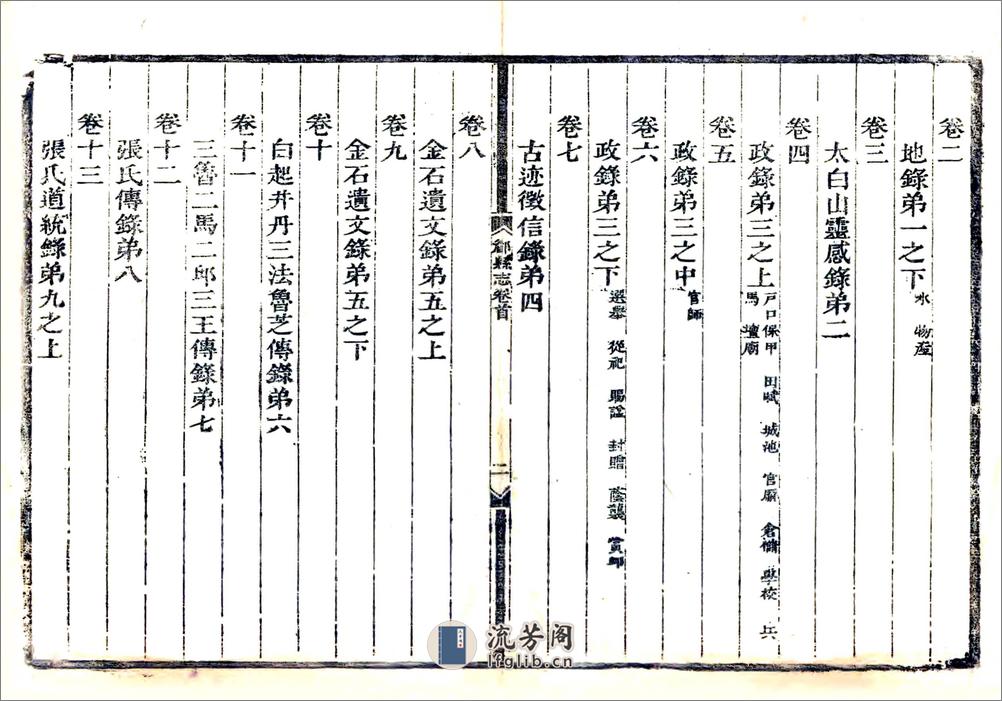 卷二
地錄弟一之下 水 物產
卷三
太白山靈感錄弟二
卷四
政錄弟三之上 戶口保甲 田賦 城池 官廟 倉儲 學校 兵馬 壇廟
卷五
政錄弟三之中 官師
卷六
政錄弟三之下 選舉 從祀 賜諡 封贈 蔭襲
卷七
古迹徵信錄弟四
郿縣志卷首
二
卷八
金石遺文錄弟五之上
卷九
金石遺文錄弟五之下
卷十
白起井丹三法魯芝傳錄弟六
卷十一
三魯二馬二郎三王傳錄弟七
卷十二
張氏傳錄弟八
卷十三
張氏道統錄弟九之上
流芳阁
lfglib.cn